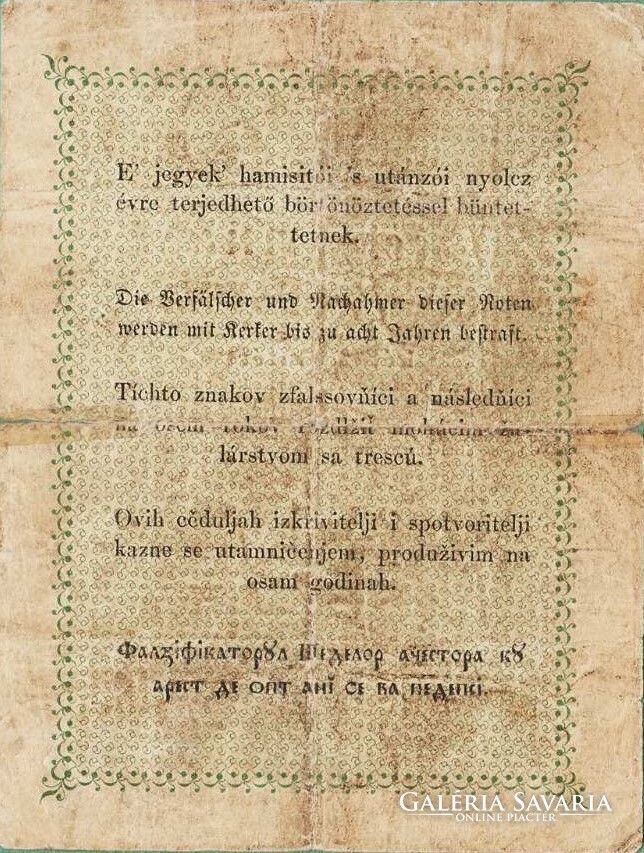 E' jegyek' hamisitói 's utánzói nyolcz
évre terjedhető börtönöztetéssel büntet-
tetnek.
Die Verfälscher und Nachahmer dieser Noten
werden mit Kerker bis zu acht Jahren bestraft.
Tíchto znakov zfalssovňíci a následňíci
na osem rokov
lárstvom sa trescú.
Ovih cěduljah izkrivitelji i spotvoritelji
kazne se utamničenjem, produživim na
osam godinah.
Фалзіфікаторꙋл Шеделор ачестора кꙋ
арест де опт ані се ва педепсі.
GALÉRIA SAVARIA
ONLINE PIACTÉR